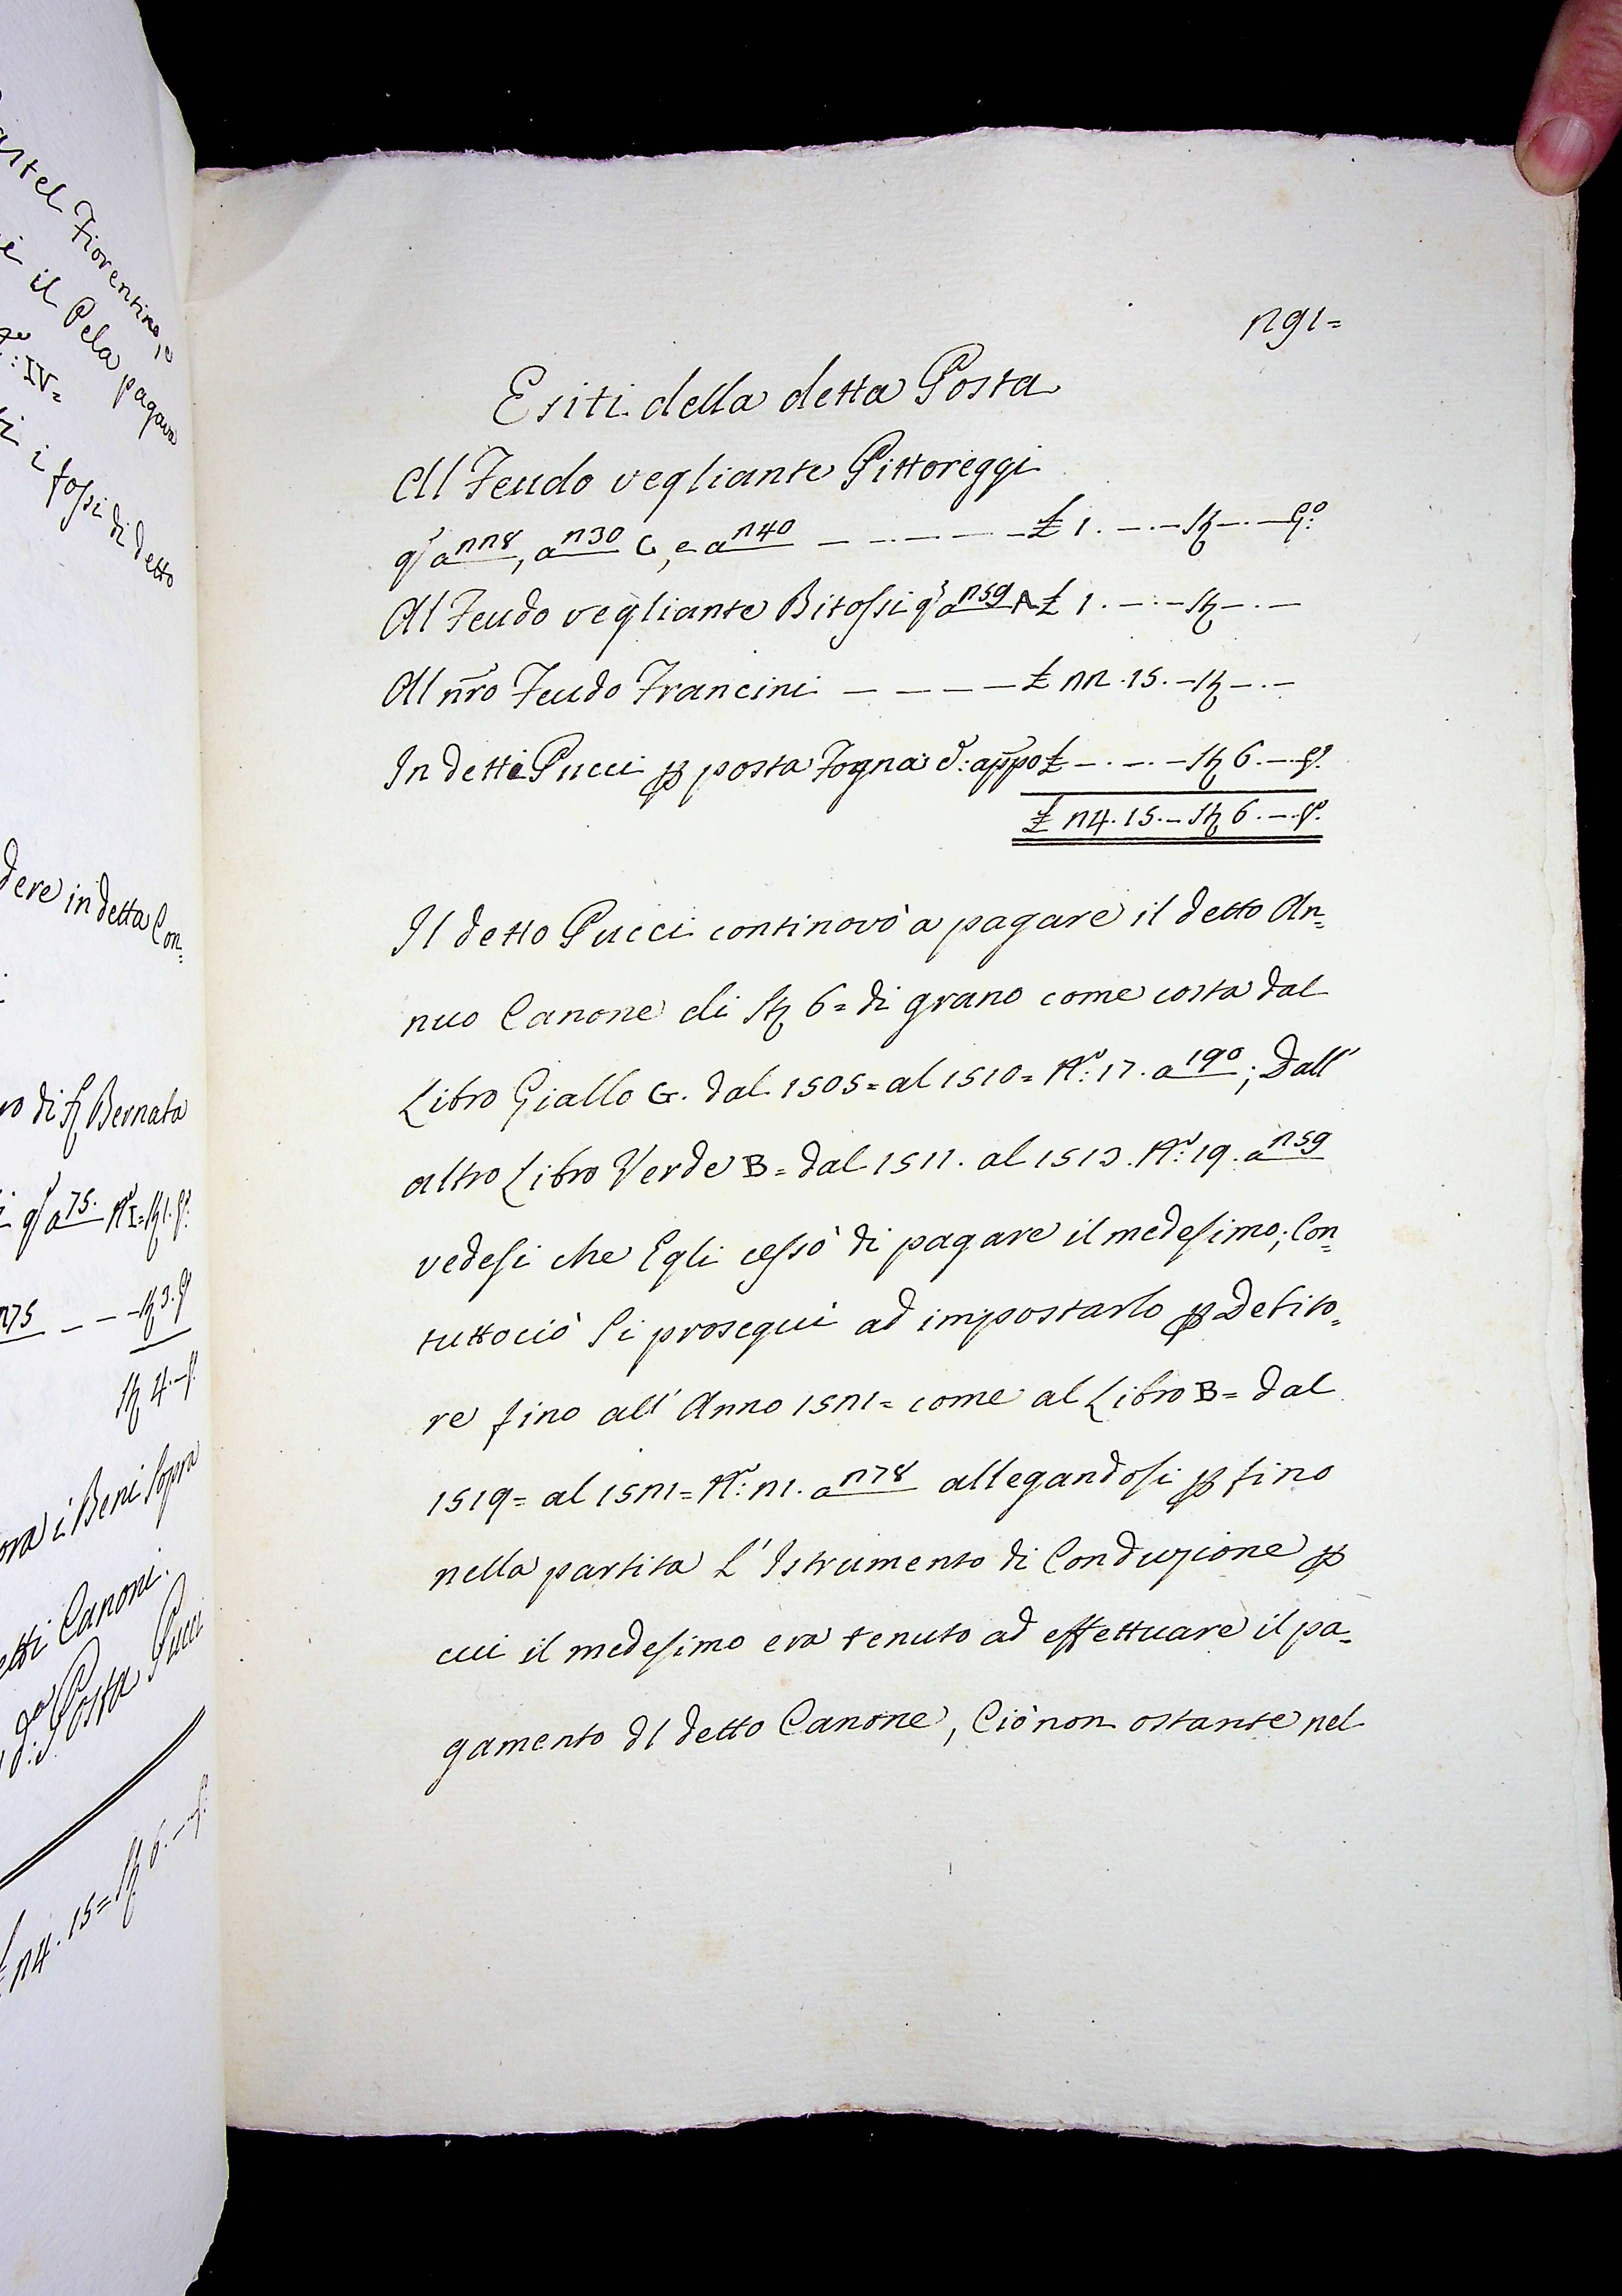 astel Fiorentino, e
i il Pela pagava
:IV=
i fossi di detto
dere in detta Con=
ro di ſſ Bernata
qſ a 75. Nº I= St 1. gº:
275 — — — St 3. gº
St 4. — gº.
ora i Beni Sopra
etti Canoni.
dª: Posta Pucci
£ 24. 15= St 6. — gº:
291=
Esiti della detta Posta
Al Feudo vegliante Pittoreggi
qſ a 228, a 230 C, e a 240 — — — — £ 1. —.— St —.— Gº:
Al Feudo vegliante Bitossi qſ a 259 A £ 1. —.— St —.—
Al nr̃o Feudo Francini — — — — £ 22. 15. — St —.—
In detti Pucci ꝑ posta Fogna d: app̃o £ —.—.— St 6. — gº.
£ 24. 15. — St 6. — gº.
Il detto Pucci continovò a pagare il detto An=
nuo Canone di St 6= di grano come costa dal
Libro Giallo G. dal 1505= al 1510= Nº: 17. a 190; Dall'
altro Libro Verde B= dal 1511. al 1513. Nº: 19. a 259
vedesi che Egli cessò di pagare il medesimo; Con=
tuttociò Si proseguì ad impostarlo ꝑ Debito=
re fino all' Anno 1521= come al Libro B= dal
1519= al 1521= Nº: 21. a 278 allegandosi ꝑ fino
nella partita L' Istrumento di Conduzione ꝑ
cui il medesimo era tenuto ad effettuare il pa=
gamento dl detto Canone, Ciò non ostante nel